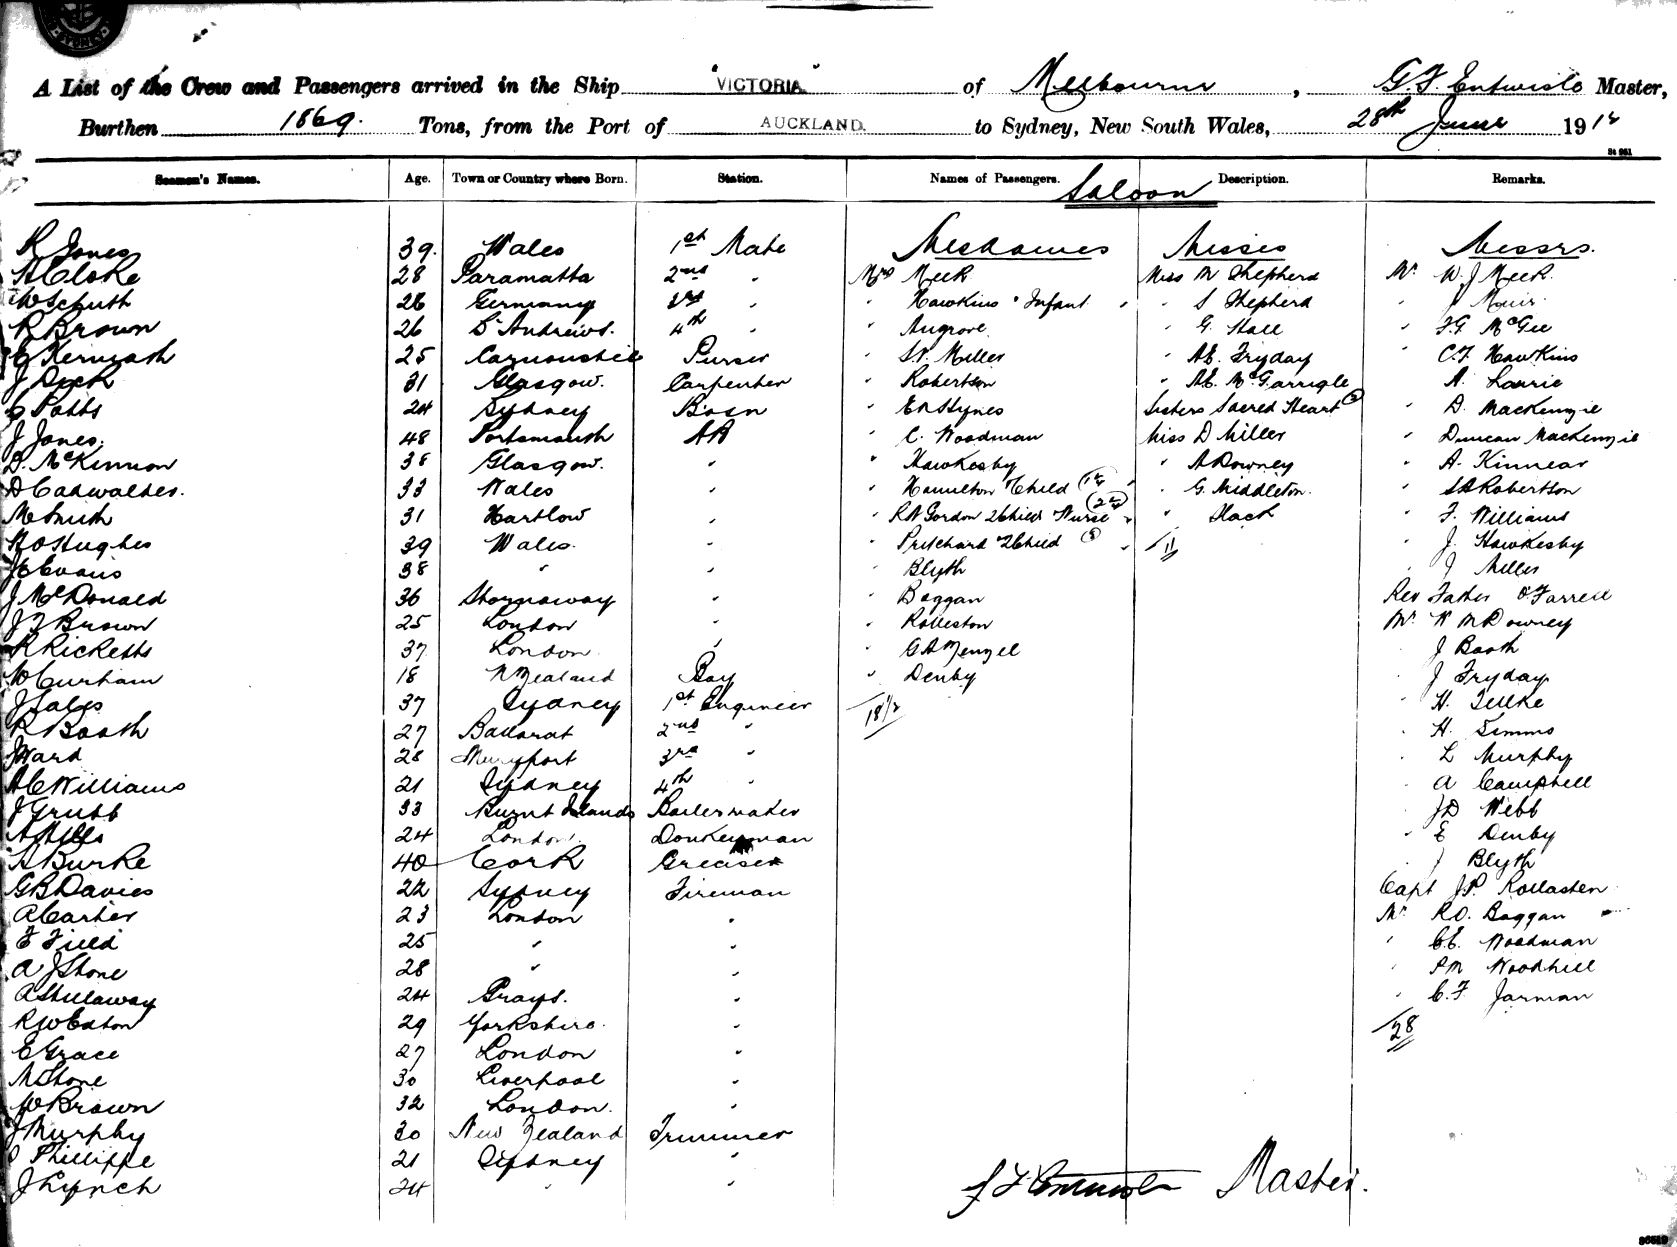 SYDNEY
A List of the Crew and Passengers arrived in the Ship "VICTORIA" of Melbourne, G. F. Entwisle Master,
Burthen 1869. Tons, from the Port of AUCKLAND. to Sydney, New South Wales, 28th June 1912
St 951
Seamen's Names. Age. Town or Country where Born. Station. Names of Passengers. Saloon Description. Remarks.
R Jones 39. Wales 1st Mate Mesdames Misses Messrs.
28 Paramatta 2nd " Mrs Meek Miss M Shepherd Mr W. J Meek.
W Schuth 28 Germany 3rd " " Hawkins " Infant " " S Shepherd " J Muir.
R Brown 26 St Andrews. 4th " " Angrove " G. Hall " F G McGee
25 Carnoustie Purser " W. Miller " A.E. Fryday " C. F. Hawkins
J Dick 31 Glasgow. Carpenter " Robertson " A.E. McGarrigle " A. Laurie
C Potts 24 Sydney Bosn " E R Hynes Sisters Sacred Heart (3) " D. MacKenzie
J Jones. 48 Portsmouth AB " C. Woodman Miss D Miller " Duncan MacKenzie
D. McKinnon 38 Glasgow. " " Hawkesby " A Downey " A. Kinnear
D Cadwalder. 33 Wales " " Hamilton Child " " G. Middleton. " Robertson
M Smith 31 Hartlow " " R W Gordon 2 Child Nurse " " Slack " F. Williams
H O Hughes 39 Wales. " " Pritchard 2 Child " 11 " J. Hawkesby
J E Evans 38 " " " Blyth " J Miller
J McDonald 36 Stornaway " " Baggan Rev Father O'Farrell
J F Brown 25 London " " Rolleston Mr W M Downey
R Ricketts 37 London " " G A Menzel J Booth
W Curham 18 N Zealand Boy " Denby J Fryday.
J Sales 37 Sydney 1st Engineer 18 1/2 " H. Tuke
R Booth 27 Ballarat 2nd " " H. Simms
J Ward 28 Maryport 3rd " " L Murphy
A C Williams 21 Sydney 4th " " A Campbell
J Grubb 33 Burnt Islands Boilermaker " J D Webb
A Mills 24 London. Donkeyman " E Denby
S Burke 40 Cork Greaser " J Blyth
G B Davies 22 Sydney Fireman Capt J. P. Rollaston
A Carter 23 London " Mr R O. Baggan
F Field 25 " " " C. E. Woodman
A J Stone 28 " " " P M Woodhill
A Stillaway 24 Grays. " " C. F. Jarman
R W Eaton 29 Yorkshire. " 28
E Grace 27 London "
M Stone 30 Liverpool "
W Brown 32 London. "
J Murphy 30 New Zealand Trimmer
Phillippe 21 Sydney "
J Lynch 24 " "
Entwisle Master.